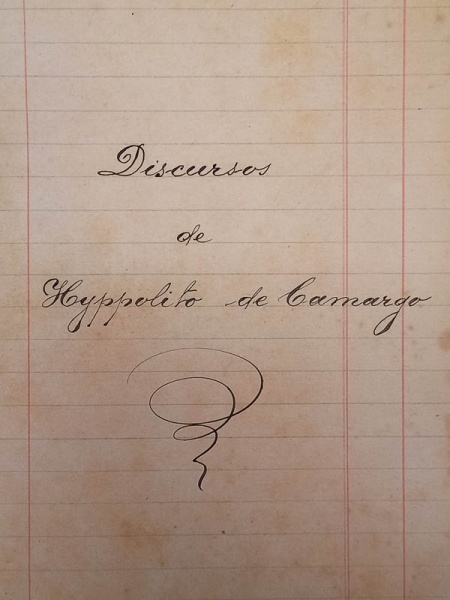 Discursos
de
Hyppolito de Camargo